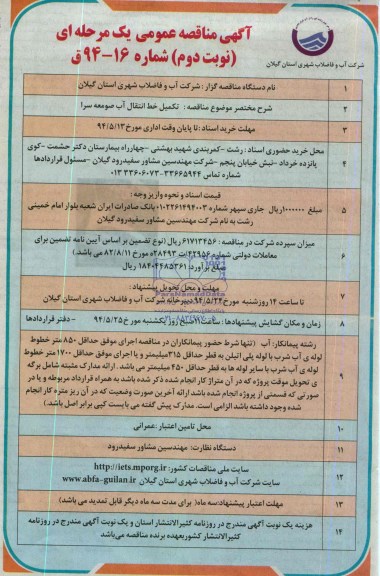 آگهی مناقصه عمومی یک مرحله ای
(نوبت دوم) شماره ۱۶-۹۴ ق
شرکت آب و فاضلاب شهری استان گیلان
۱ نام دستگاه مناقصه گزار : شرکت آب و فاضلاب شهری استان گیلان
۲ شرح مختصر موضوع مناقصه : تکمیل خط انتقال آب صومعه سرا
۳ مهلت خرید اسناد :تا پایان وقت اداری مورخ ۹۴/۵/۱۳
محل خرید حضوری اسناد : رشت -کمربندی شهید بهشتی -چهارراه بیمارستان دکتر حشمت -کوی
۴ پانزده خرداد -نبش خیابان پنجم -شرکت مهندسین مشاور سفیدرود گیلان -مسئول قراردادها
شماره تماس ۳۳۶۶۵۹۴۴-۰۱۳۳۳۶۰۶۰۷۳
قیمت اسناد و نحوه واریز وجه :
۵ مبلغ ۱۰۰۰۰۰۰ ریال جاری سپهر شماره ۰۱۰۲۲۶۱۴۹۴۰۰۳ بانک صادرات ایران شعبه بلوار امام خمینی
رشت به نام شرکت مهندسین مشاور سفیدرود گیلان
میزان سپرده شرکت در مناقصه : ۶۱۷۱۳۴۵۶ ریال (نوع تضمین بر اساس آیین نامه تضمین برای
۶ معاملات دولتی شماره ۴۲۹۵۶/ت ۲۸۴۹۳ه مورخ ۸۲/۸/۱۱ می باشد.)
مبلغ برآورد: ۱۸۴۰۴۴۸۵۳۶۱ ریال
مهلت و محل تحویل پیشنهاد:
۷ تا ساعت ۱۴ روز شنبه مورخ ۹۴/۵/۲۴ دبیرخانه شرکت آب و فاضلاب شهری استان گیلان
۸ زمان و مکان گشایش پیشنهادها : ساعت ۱۱ صبح روز یکشنبه مورخ ۹۴/۵/۲۵ - دفتر قراردادها
رشته پیمانکار: آب (تنها شرط حضور پیمانکاران در مناقصه اجرای موفق حداقل ۸۵۰ متر خطوط
لوله ی آب شرب با لوله پلی اتیلن به قطر حداقل ۳۱۵ میلیمتر و یا اجرای موفق حداقل ۱۷۰۰ متر خطوط
لوله ی آب شرب با سایر لوله ها به قطر حداقل ۴۵۰ میلیمتر می باشد. ارائه مدارک مثبته شامل برگه
۹ ی تحویل موقت پروژه که در آن متراژ کار انجام شده ذکر شده باشد به همراه قرارداد مربوطه و یا در
صورتی که قسمتی از پروژه انجام شده باشد ارائه آخرین صورت وضعیت که در آن ریز متره کار انجام
شده وجود داشته باشد الزامی است. مدارک پیش گفته می بایست کپی برابر اصل باشد.)
۱۰ محل تامین اعتبار :عمرانی
۱۱ دستگاه نظارت: مهندسین مشاور سفیدرود
سایت ملی مناقصات کشور: http://iets.mporg.ir
۱۲ سایت شرکت آب و فاضلاب شهری استان گیلان www.abfa-guilan.ir
۱۳ مهلت اعتبار پیشنهاد:سه ماه( برای مدت سه ماه دیگر قابل تمدید می باشد)
هزینه یک نوبت آگهی مندرج در روزنامه کثیرالانتشار استان و یک نوبت آگهی مندرج در روزنامه
۱۴ کثیرالانتشار کشور بعهده برنده مناقصه می باشد